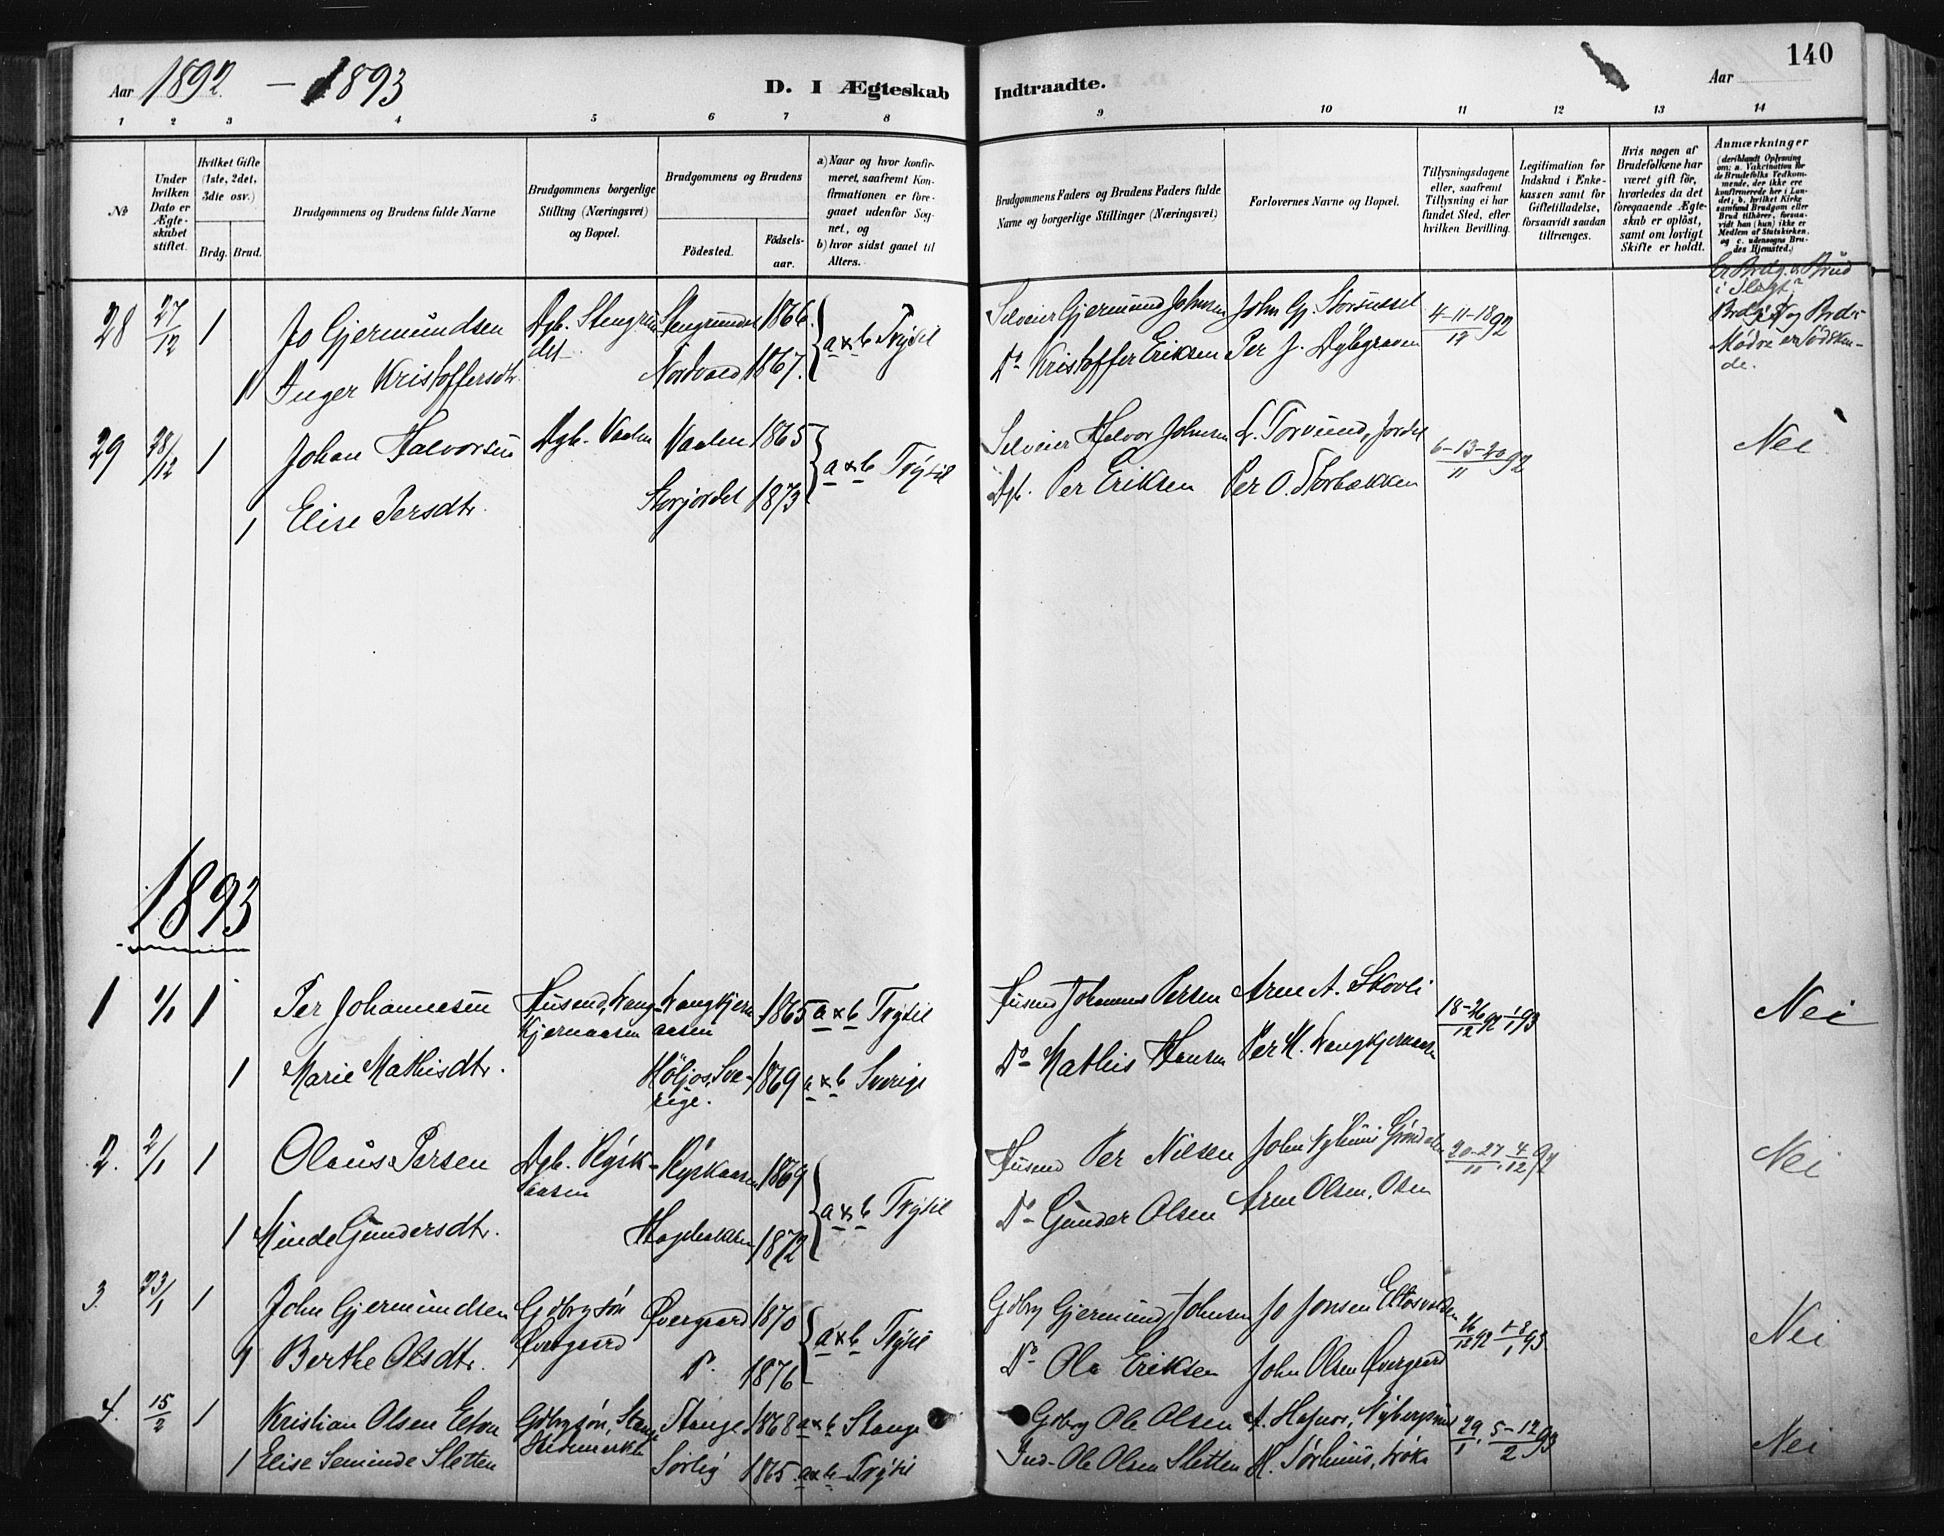 140
Aar 1892. — 1893
D. I Ægteskab
Indtraadte.
Aar
1 2 3 4 5 6 7 8
9 10 11 12 13 14
№
Under hvilken Dato er Ægteskabet stiftet.
Hvilket Gifte (1ste, 2det, 3die osv.)
Brdg. Brud.
Brudgommens og Brudens fulde Navne
Brudgommens borgerlige Stilling (Næringsvei) og Bopæl.
Brudgommens og Brudens
Födested.
Födselsaar.
a) Naar og hvor konfirmeret, saafremt Konfirmationen er foregaaet udenfor Sognet, og
b) hvor sidst gaaet til Alters.
Brudgommens Faders og Brudens Faders fulde Navne og borgerlige Stillinger (Næringsvei)
Forlovernes Navne og Bopæl.
Tillysningsdagene eller, saafremt Tillysning ei har fundet Sted, efter hvilken Bevilling.
Legitimation for Indskud i Enkekassen samt for Giftetilladelse, forsaavidt saadan tiltrænges.
Hvis nogen af Brudefolkene har været gift för, hvorledes da det foregaaende Ægteskab er oplöst, samt om lovligt Skifte er holdt.
Anmærkninger
(deriblandt Oplysning om: a. Vakcination for de Brudefolks Vedkommende, der ikke ere konfirmerede her i Landet; b. hvilket Kirkesamfund Brudgom eller Brud tilhörer, forsaavidt han (hun) ikke er Medlem af Statskirken, og c. udensogns Brudes Hjemsted.)
28 27/12 1 Jo Gjermundsen Dgb. Stengrundet Stengrundet 1866. a & b Trysil
Selveier Gjermund Johnsen John Gj. Storsnesset 4-11-18/12 92
Er Brdg. & Brud i Slægt?
1 Inger Kristoffersdtr. Nordvold 1867.
Do Kristoffer Eriksen Per J. Dybgraven
29 28/12 1 Johan Halvorsen Dgb. Vaalen Vaalen 1865 a & b Trysil
Selveier Halvor Johnsen 6-13-20/11 92
Nei
1 Elise Persdtr. Storjordet 1873
Dgb. Per Eriksen Per O. Storbækken
1893
1 1/1 1 Per Johannesen Husmd, Langkjernaasen Langkjernaasen 1865 a & b Trysil
Husmd Johannes Persen Arne A. Skovli 18-26/12 92 1/1 93
Nei
1 Marie Mathisdtr. Höljos, Sverige. 1869 a & b Sverige
Do Mathis Hansen Per M. Langkjernaasen
2. 2/1 1 Olaus Persen Dgb. Rysk-aasen Ryskaasen 1869 a & b Trysil
Husmd Per Nilsen John Nyhuus Gröndalen 20-27/11, 4/12 92
Nei
1 Minde Gundersdtr. Hagebakken 1872
Do Gunder Olsen Arne Olsen,
3. 23/1 1 John Gjermundsen Gdbrgsön Övergaard Övergaard 1870 a & b Trysil
Gdbrg Gjermund Johnsen Jo Jonsen 26/12 92 1-8/1 93.
Nei
1 Berthe Olsdtr. Do 1876
Do Ola Eriksen John Olsen Övergaard
4. 15/2 1 Kristian Olsen Gdbrgsön, Stange Hedemarken Stange 1868 a & b Stange
Gdbrg Ole Olsen 29/1, 5-12/2 93
Nei
1 Elise Seminde Sletten Sörlig 1865 a & b Trysil
Ind. Ole Olsen Sletten M. Sörhuus,